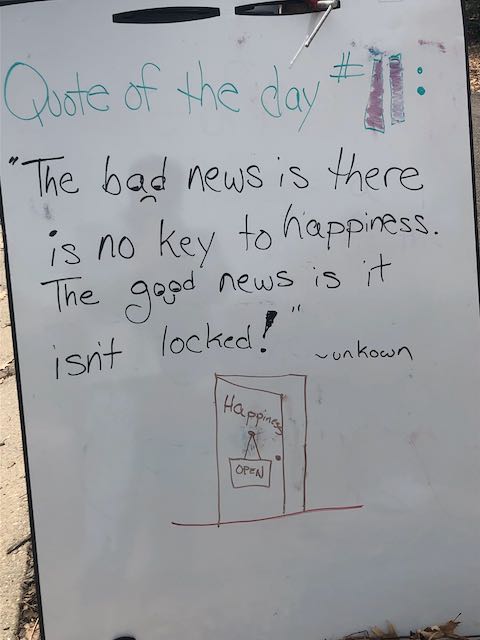 Quote of the day #11:
"The bad news is there
is no key to happiness.
The good news is it
isn't locked!"
~unkown
Happiness
OPEN